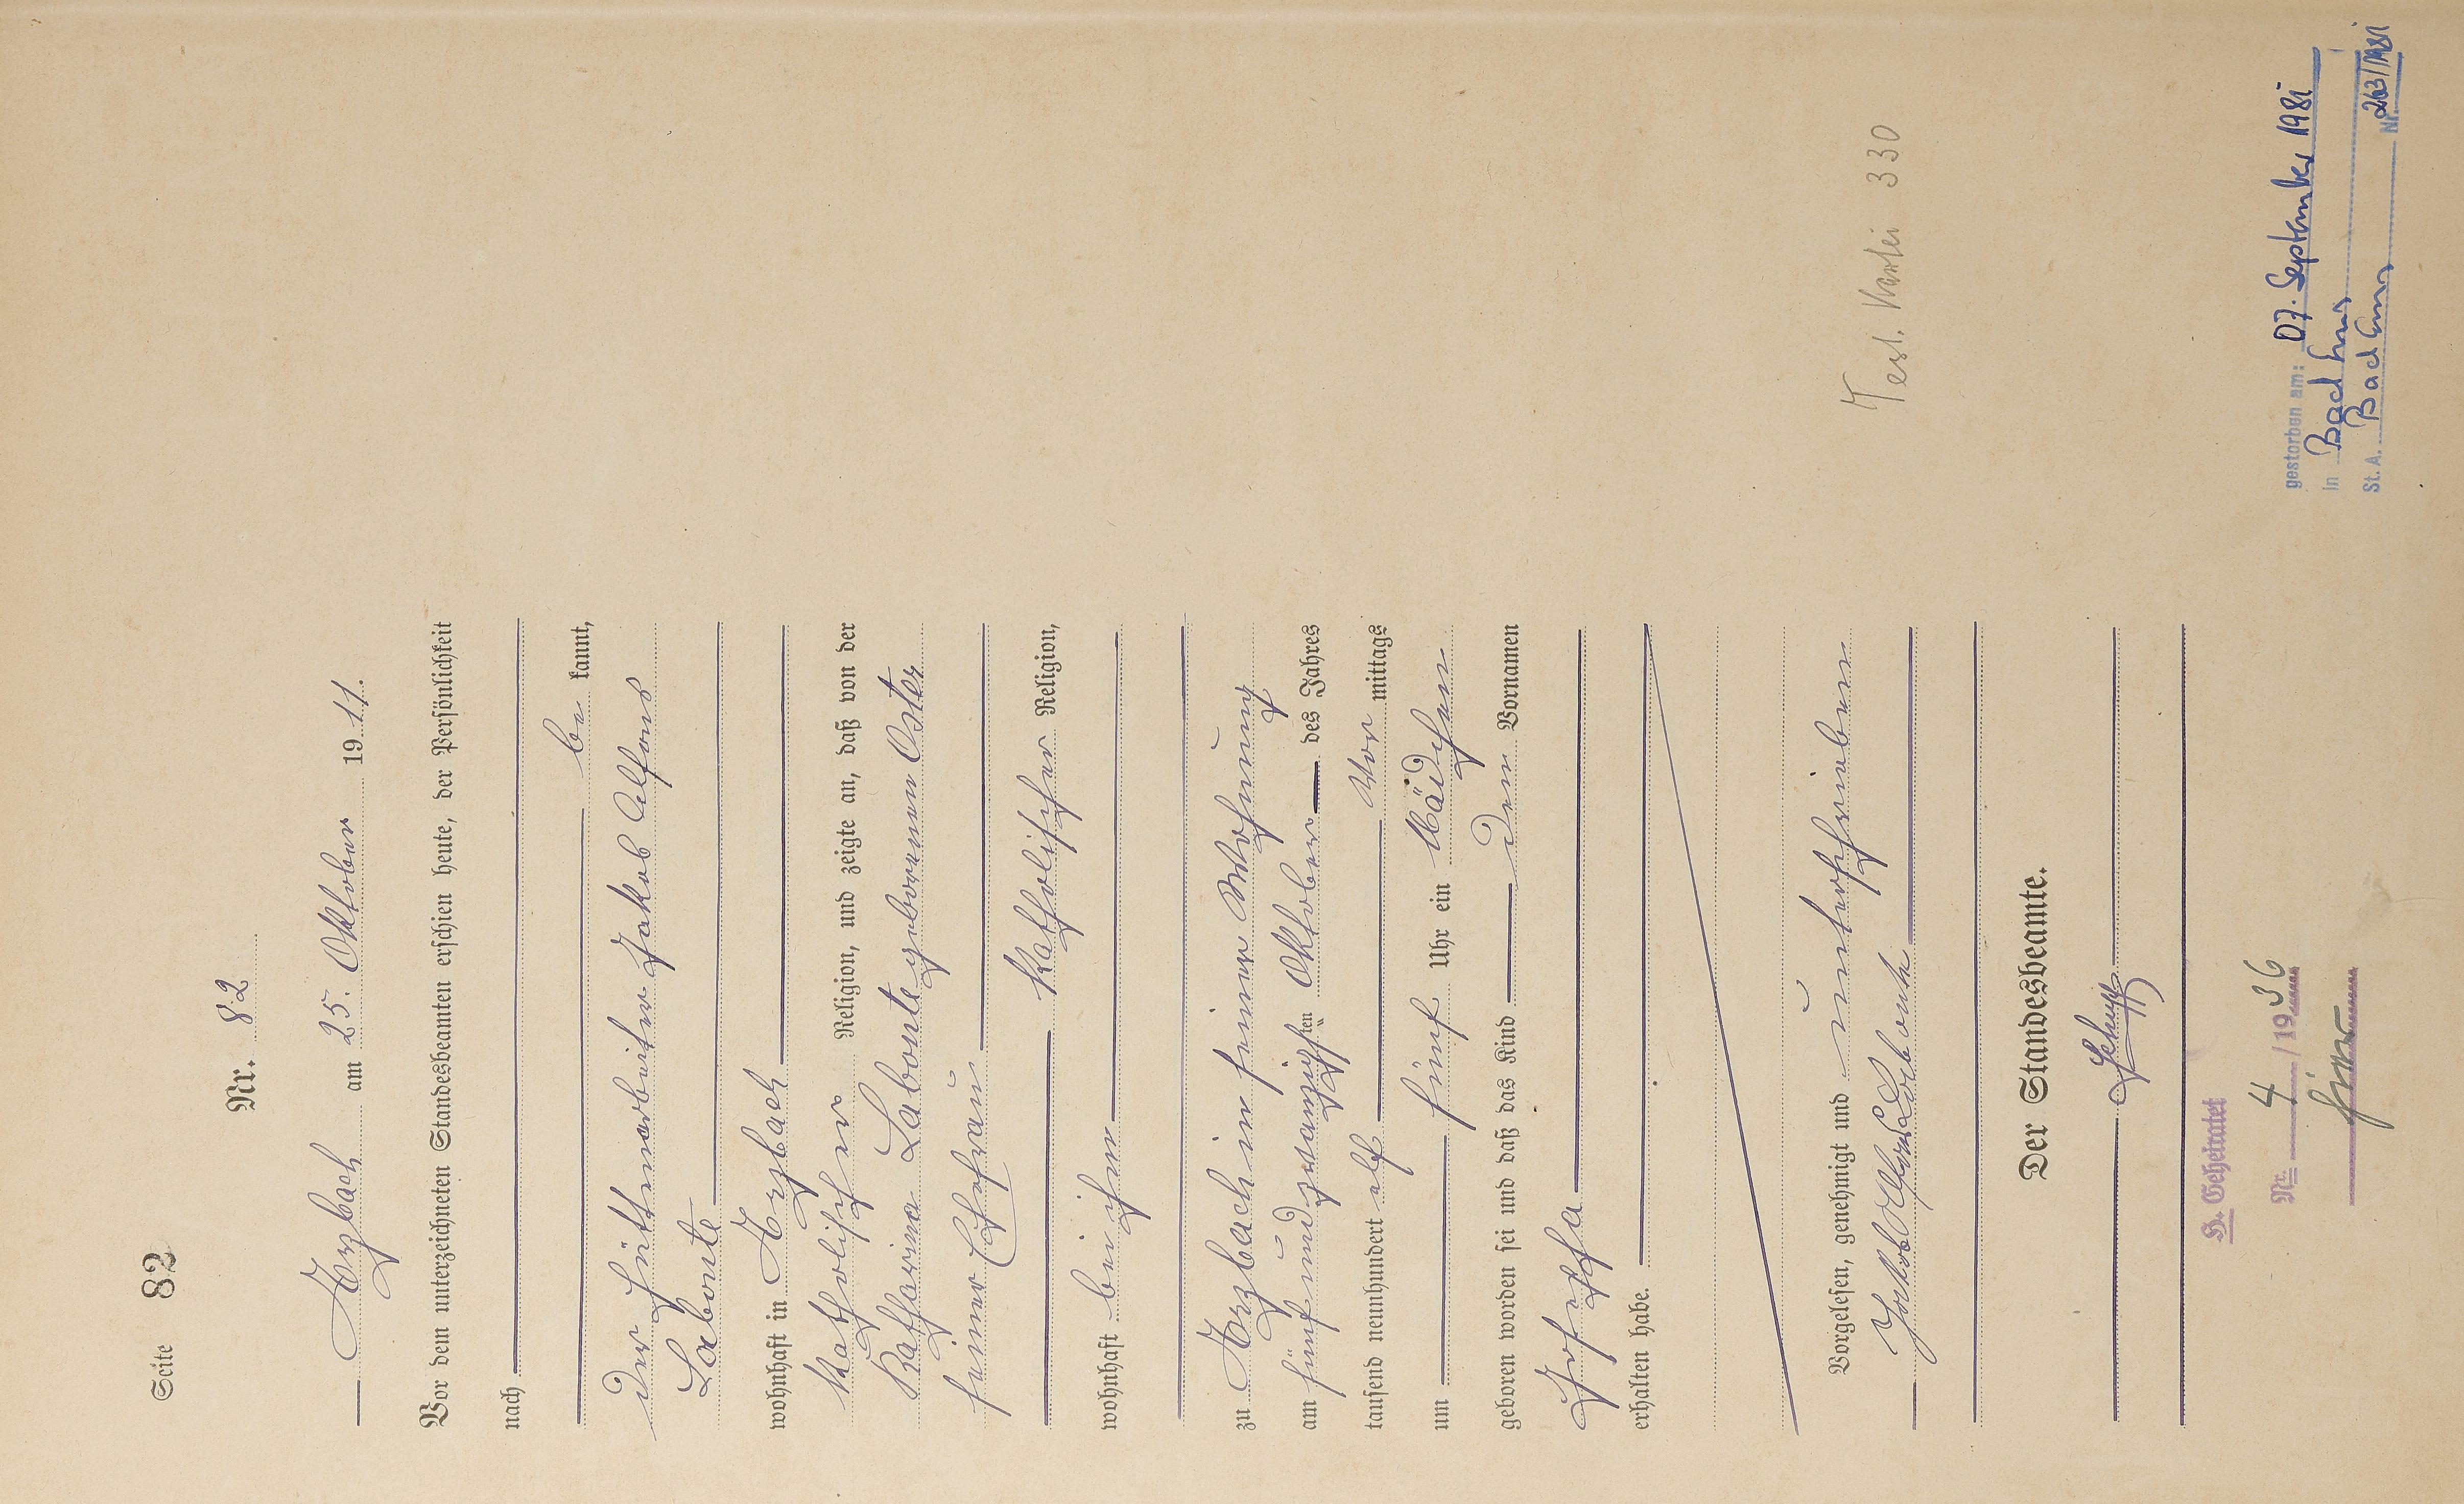 Seite 82
Nr. 82
Arzbach am 25. Oktober 1911.
Vor dem unterzeichneten Standesbeamten erschien heute, der Persönlichkeit
nach
be kannt,
der Hüttenarbeiter Jakob Alfons
Labonte
wohnhaft in Arzbach
katholischer Religion, und zeigte an, daß von der
Katharina Labonte geborenen Oster
seiner Ehefrau
katholischer Religion,
wohnhaft bei ihm
zu Arzbach in seiner Wohnung
am fünfundzwanzigsten Oktober des Jahres
tausend neunhundert elf Vor mittags
um fünf Uhr ein Mädchen
geboren worden sei und daß das Kind den Vornamen
Josefa
erhalten habe.
Vorgelesen, genehmigt und unterschrieben
Jakob Alfons Labonte
Der Standesbeamte.
Schupp
H. Geheiratet
Nr. 4 / 1936
Test. Kartei 330
gestorben am: 07. September 1981
in Bad Ems
St. A. Bad Ems Nr. 263/1981